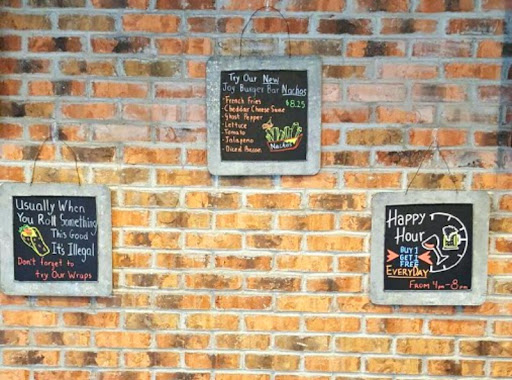 Try Our New
Joy Burger Bar Nachos
- French Fries
- Cheddar Cheese Sauce
- Ghost Pepper
- Lettuce
- Tomato
- Jalapeno
- Diced Bacon
$8.25
Nachos
Usually When
You Roll Something
This Good
It's Illegal
Don't forget to
try Our Wraps
Happy
Hour
BUY 1
GET 1
FREE
EVERYDAY
From 4pm-8pm